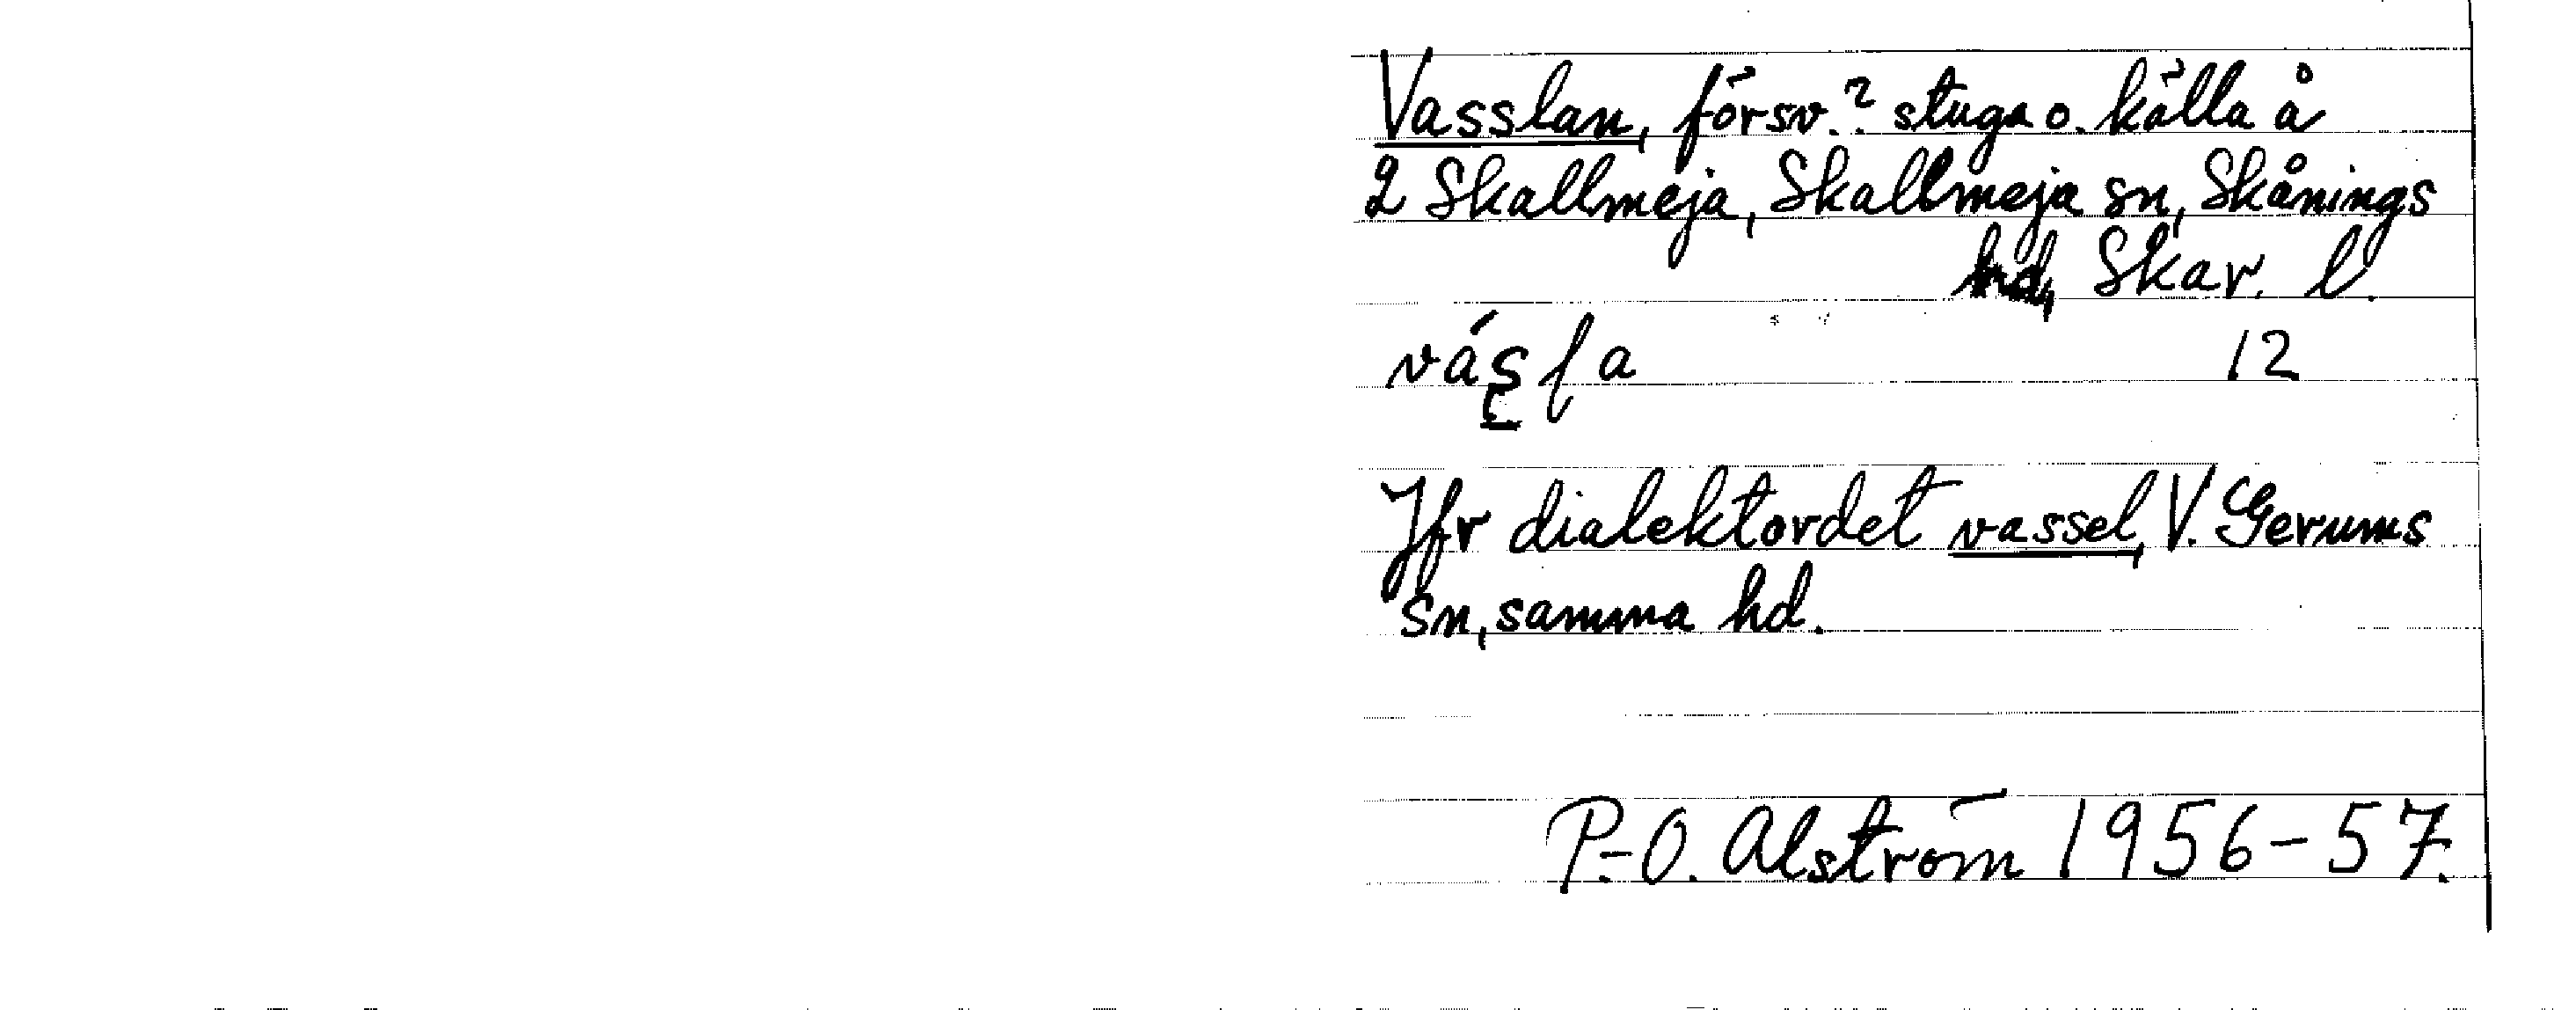 Vasslan, försv.? stuga o. källa å
2 Skallmeja, Skallmeja sn, Skånings
hd, Skar. l.
vásla 12
Jfr dialektordet vassel, V. Gerums
sn, samma hd.
P.-O. Alström 1956-57.